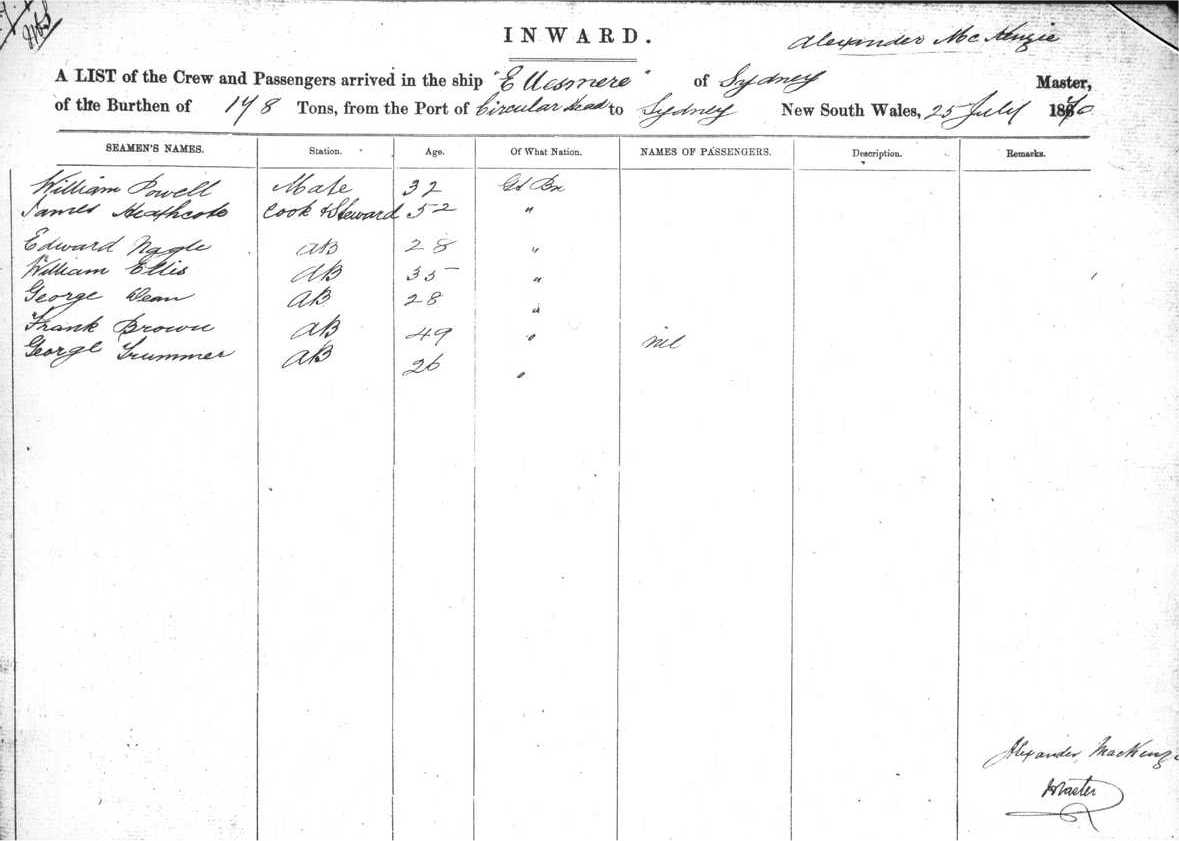 INWARD.
Alexander McKenzie
A LIST of the Crew and Passengers arrived in the ship "Ellesmere" of Sydney Master,
of the Burthen of 148 Tons, from the Port of Circular Head to Sydney New South Wales, 25 July 1870
SEAMEN'S NAMES. Station. Age. Of What Nation. NAMES OF PASSENGERS. Description. Remarks.
William Powell Mate 32 Gt Bn
James Heathcote Cook & Steward 52 "
Edward Nagle AB 28 "
William Ellis AB 35 "
George Dean AB 28 "
Frank Brown AB 49 " nil
George Trummer AB 26 "
Alexander MacKenzie
Master